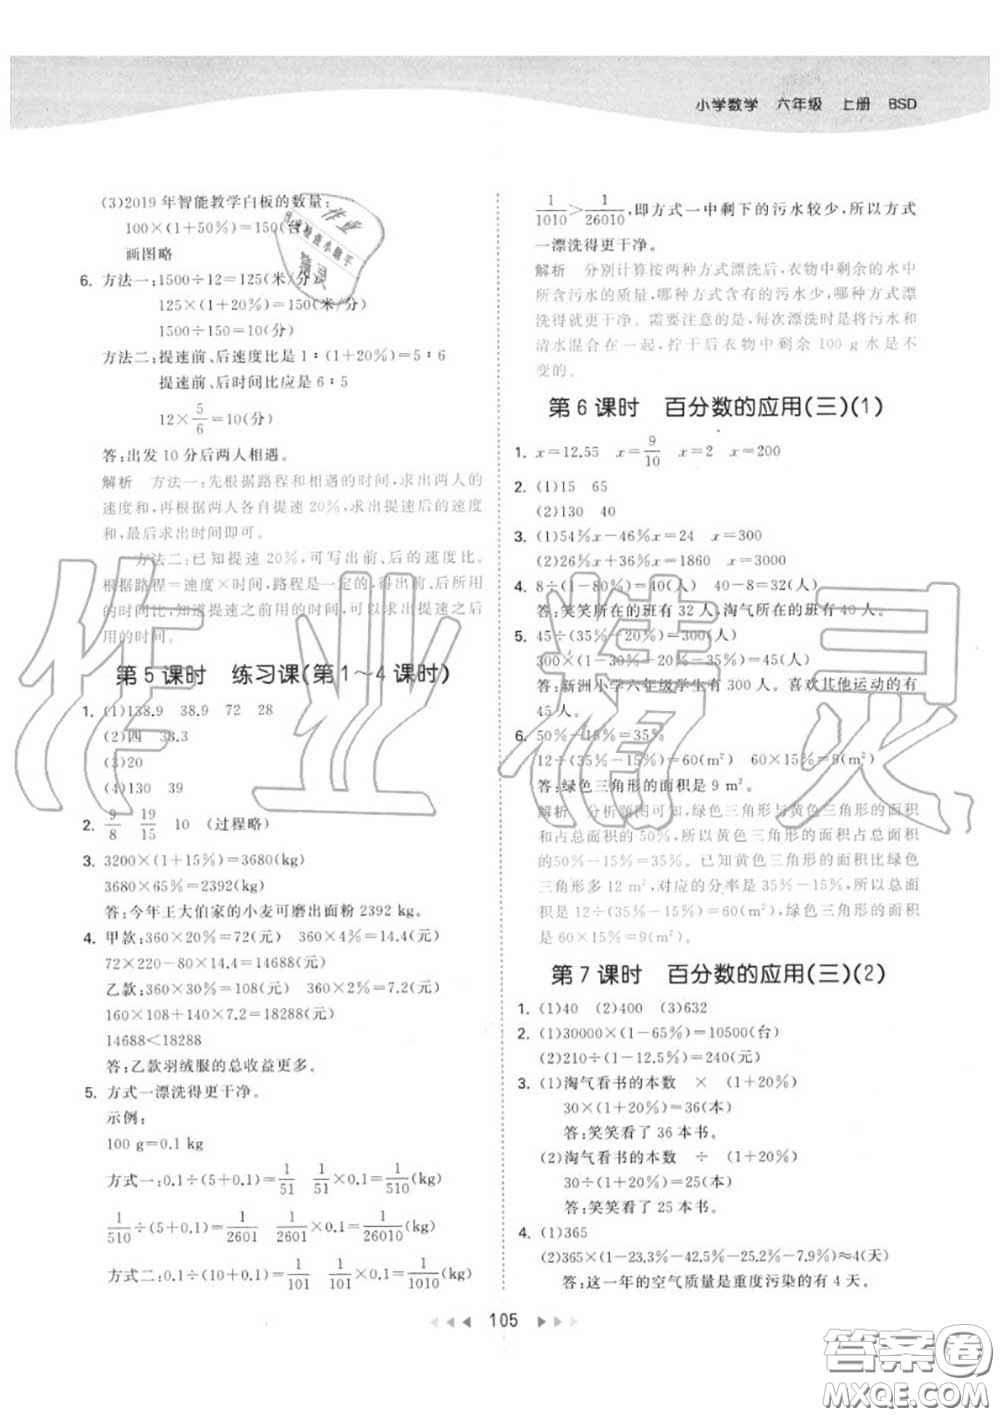 小学数学 六年级 上册 BSD
(3)2019年智能教学白板的数量:
100×(1+50%)=150(台)
画图略
6. 方法一:1500÷12=125(米/分)
125×(1+20%)=150(米/分)
1500÷150=10(分)
方法二:提速前、后速度比是1∶(1+20%)=5∶6
提速前、后时间比应是6∶5
12×5/6=10(分)
答:出发10分后两人相遇。
解析 方法一:先根据路程和相遇的时间,求出两人的
速度和,再根据两人各自提速20%,求出提速后的速度
和,最后求出时间即可。
方法二:已知提速20%,可写出前、后的速度比。
根据路程=速度×时间,路程是一定的,得出前、后所用
的时间比,知道提速之前用的时间,可以求出提速之后
用的时间。
第5课时 练习课(第1～4课时)
1. (1)138.9 38.9 72 28
(2)四 33.3
(3)20
(4)130 39
2. 9/8 19/15 10 (过程略)
3. 3200×(1+15%)=3680(kg)
3680×65%=2392(kg)
答:今年王大伯家的小麦可磨出面粉2392 kg。
4. 甲款:360×20%=72(元) 360×4%=14.4(元)
72×220-80×14.4=14688(元)
乙款:360×30%=108(元) 360×2%=7.2(元)
160×108+140×7.2=18288(元)
14688<18288
答:乙款羽绒服的总收益更多。
5. 方式一漂洗得更干净。
示例:
100 g=0.1 kg
方式一:0.1÷(5+0.1)=1/51 1/51×0.1=1/510(kg)
1/510÷(5+0.1)=1/2601 1/2601×0.1=1/26010(kg)
方式二:0.1÷(10+0.1)=1/101 1/101×0.1=1/1010(kg)
1/1010>1/26010,即方式一中剩下的污水较少,所以方式
一漂洗得更干净。
解析 分别计算按两种方式漂洗后,衣物中剩余的水中
所含污水的质量,哪种方式含有的污水少,哪种方式漂
洗得就更干净。需要注意的是,每次漂洗时是将污水和
清水混合在一起,拧干后衣物中剩余100 g水是不
变的。
第6课时 百分数的应用(三)(1)
1. x=12.55 x=9/10 x=2 x=200
2. (1)15 65
(2)130 40
3. (1)54%x-46%x=24 x=300
(2)26%x+36%x=1860 x=3000
4. 8÷(1-80%)=40(人) 40-8=32(人)
答:笑笑所在的班有32人,淘气所在的班有40人。
5. 45÷(35%-20%)=300(人)
300×(1-30%-20%-35%)=45(人)
答:新洲小学六年级学生有300人。喜欢其他运动的有
45人。
6. 50%-15%=35%
12÷(35%-15%)=60(m²) 60×15%=9(m²)
答:绿色三角形的面积是9 m²。
解析 分析题图可知,绿色三角形与黄色三角形的面积
和占总面积的50%,所以黄色三角形的面积占总面积
的50%-15%=35%。已知黄色三角形的面积比绿色
三角形多12 m²,对应的分率是35%-15%,所以总面
积是12÷(35%-15%)=60(m²),绿色三角形的面积
是60×15%=9(m²)。
第7课时 百分数的应用(三)(2)
1. (1)40 (2)400 (3)632
2. (1)30000×(1-65%)=10500(台)
(2)210÷(1-12.5%)=240(元)
3. (1)淘气看书的本数 × (1+20%)
30×(1+20%)=36(本)
答:笑笑看了36本书。
(2)淘气看书的本数 ÷ (1+20%)
30÷(1+20%)=25(本)
答:笑笑看了25本书。
4. (1)365
(2)365×(1-23.3%-42.5%-25.2%-7.9%)≈4(天)
答:这一年的空气质量是重度污染的有4天。
105
作业精灵
答案圈
MXQE.COM